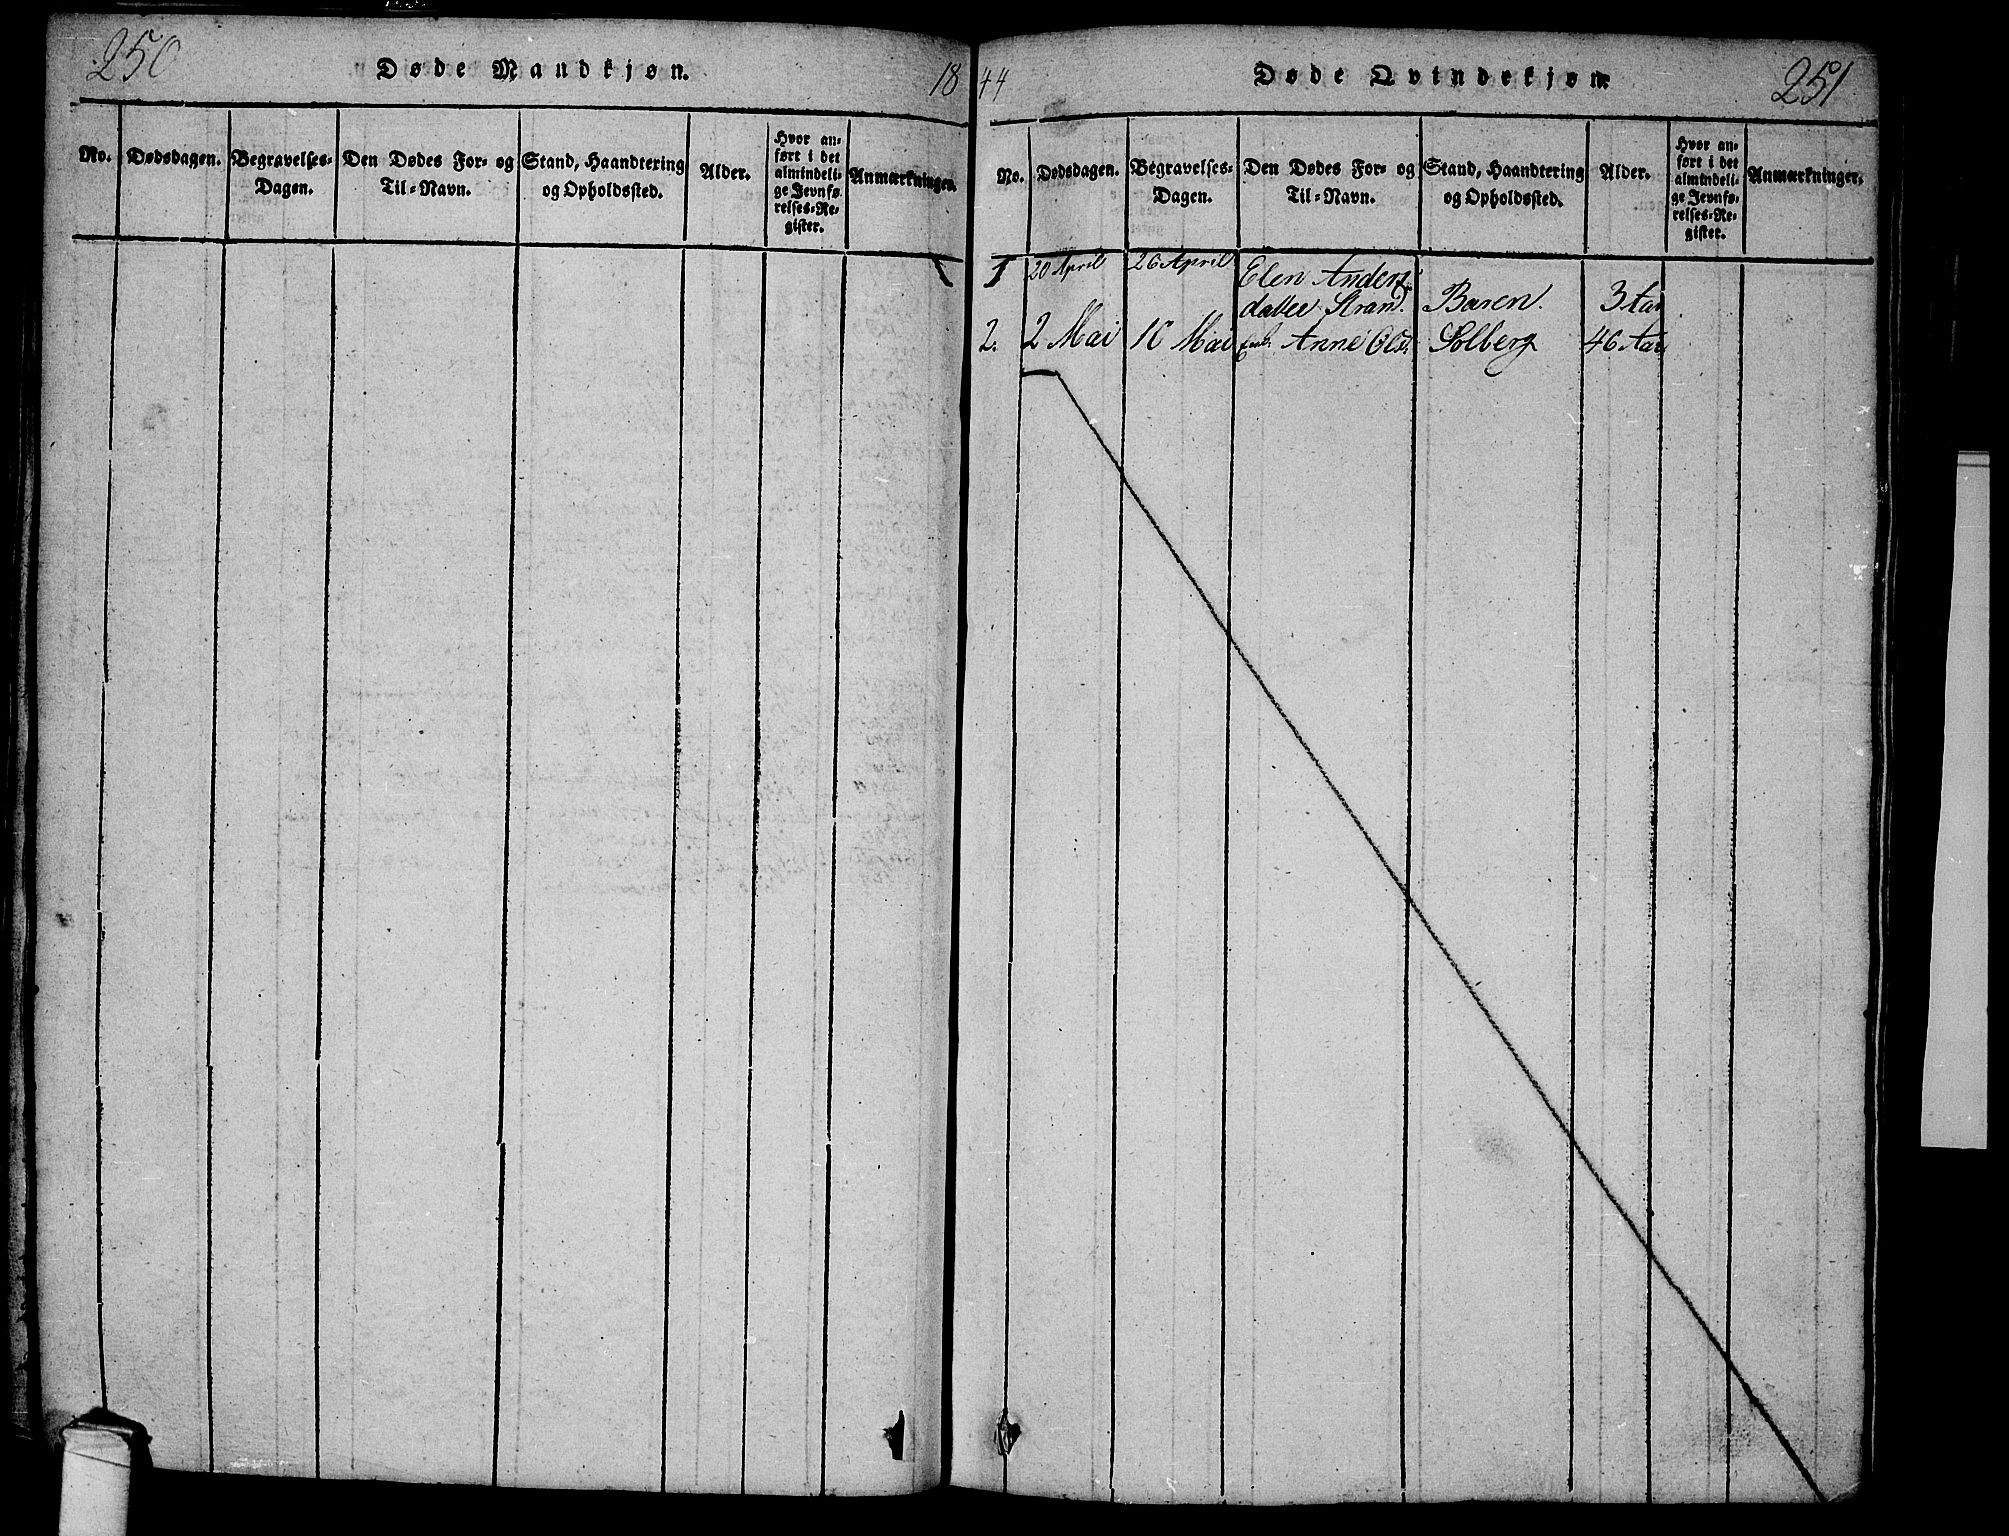 250
Døde Mandkjøn.
18
No.
Dødsdagen.
Begravelses-
Dagen.
Den Dødes For- og
Til-Navn.
Stand, Haandtering
og Opholdssted.
Alder.
Hvor an-
ført i det
almindeli-
ge Jevnfø-
relses-Re-
gister.
Anmærkninger.
44
Døde Qvindekjøn.
251
No.
Dødsdagen.
Begravelses-
Dagen.
Den Dødes For- og
Til-Navn.
Stand, Haandtering
og Opholdssted.
Alder.
Hvor an-
ført i det
almindeli-
ge Jevnfø-
relses-Re-
gister.
Anmærkninger.
1 20 April 26 April Elen Anders
datter Strand. Basen. 3 Aar
2. 2 Mai 10 Mai Anne Ols. Solberg 46 Aar